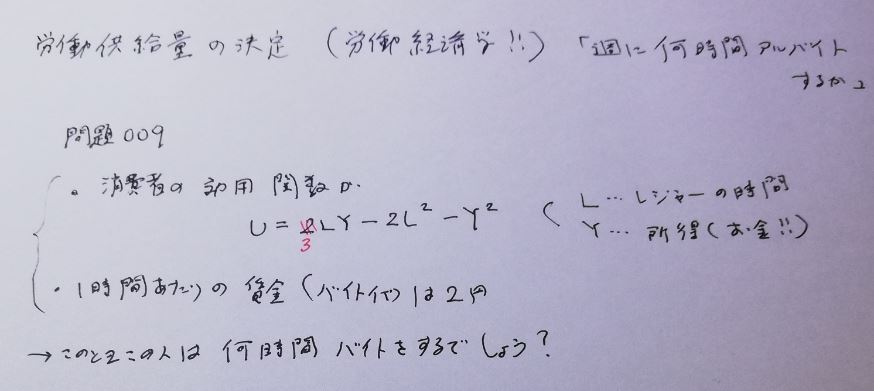 労働供給量の決定 (労働経済学!!) 「週に何時間アルバイト
するか」
問題009
・消費者の効用関数が
U = 3LY - 2L² - Y²
L…レジャーの時間
Y…所得(お金!!)
・1時間あたりの賃金(バイト代)は2円
→ このときこの人は何時間バイトをするでしょう?